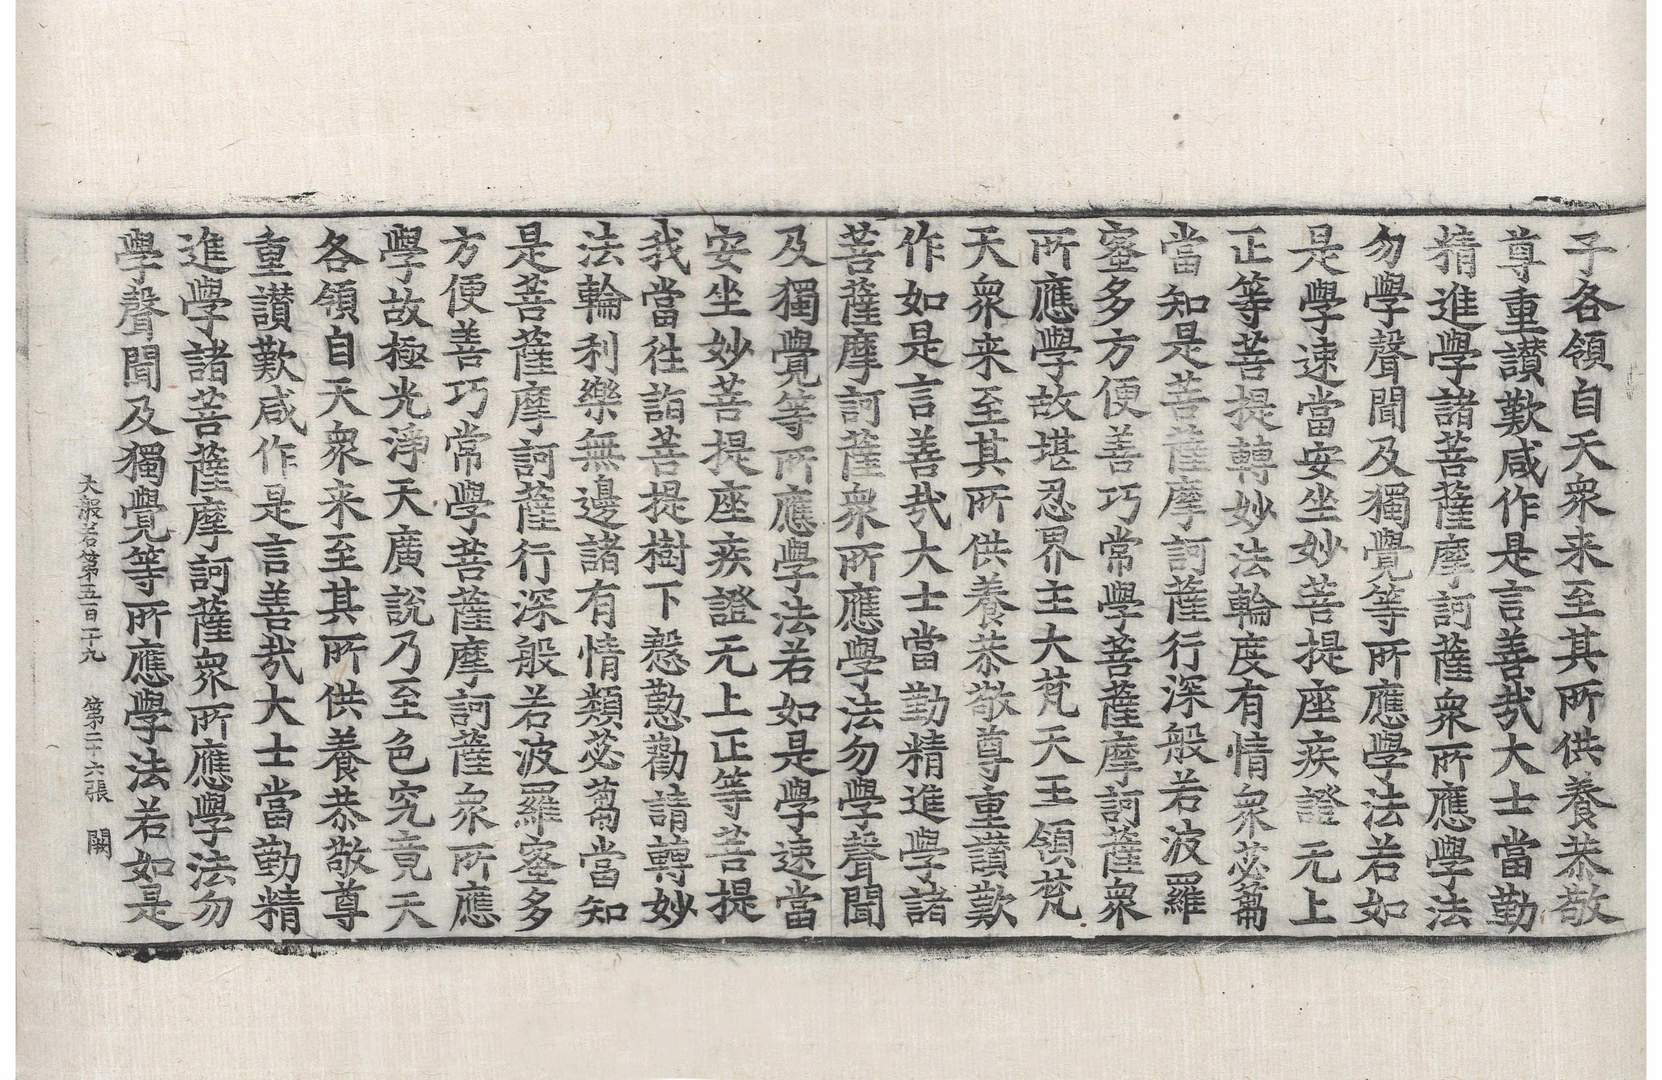 子各領自天衆来至其所供養恭敬
尊重讃歎咸作是言善哉大士當勤
精進學諸菩薩摩訶薩衆所應學法
勿學聲聞及獨覺等所應學法若如
是學速當安坐妙菩提座疾證无上
正等菩提轉妙法輪度有情衆苾蒭
當知是菩薩摩訶薩行深般若波羅
蜜多方便善巧常學菩薩摩訶薩衆
所應學故堪忍界主大梵天王領梵
天衆来至其所供養恭敬尊重讃歎
作如是言善哉大士當勤精進學諸
菩薩摩訶薩衆所應學法勿學聲聞
及獨覺等所應學法若如是學速當
安坐妙菩提座疾證无上正等菩提
我當往詣菩提樹下慇懃勸請轉妙
法輪利樂無邊諸有情類苾蒭當知
是菩薩摩訶薩行深般若波羅蜜多
方便善巧常學菩薩摩訶薩衆所應
學故極光淨天廣說乃至色究竟天
各領自天衆来至其所供養恭敬尊
重讃歎咸作是言善哉大士當勤精
進學諸菩薩摩訶薩衆所應學法勿
學聲聞及獨覺等所應學法若如是
大般若第五百二十九 第二十六張 闕